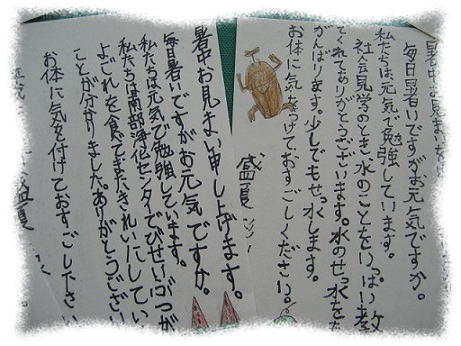 暑中お見まい
毎日暑いですがお元気ですか。
私たちは元気で勉強しています。
社会見学のとき、水のことをいっぱい教
てくれてありがとうございます。水のせっ水をた
がんばります。少しでもせっ水します。
お体に気をつけておすごしください。
盛夏
暑中お見まい申し上げます。
毎日暑いですがお元気ですか。
私たちは元気で勉強しています。
私たちは南部浄化センターでびせいぶつが
よごれを食べてまたきれいにしてい
ことが分かりました。ありがとうござい
お体に気を付けておすごし下さい
盛夏